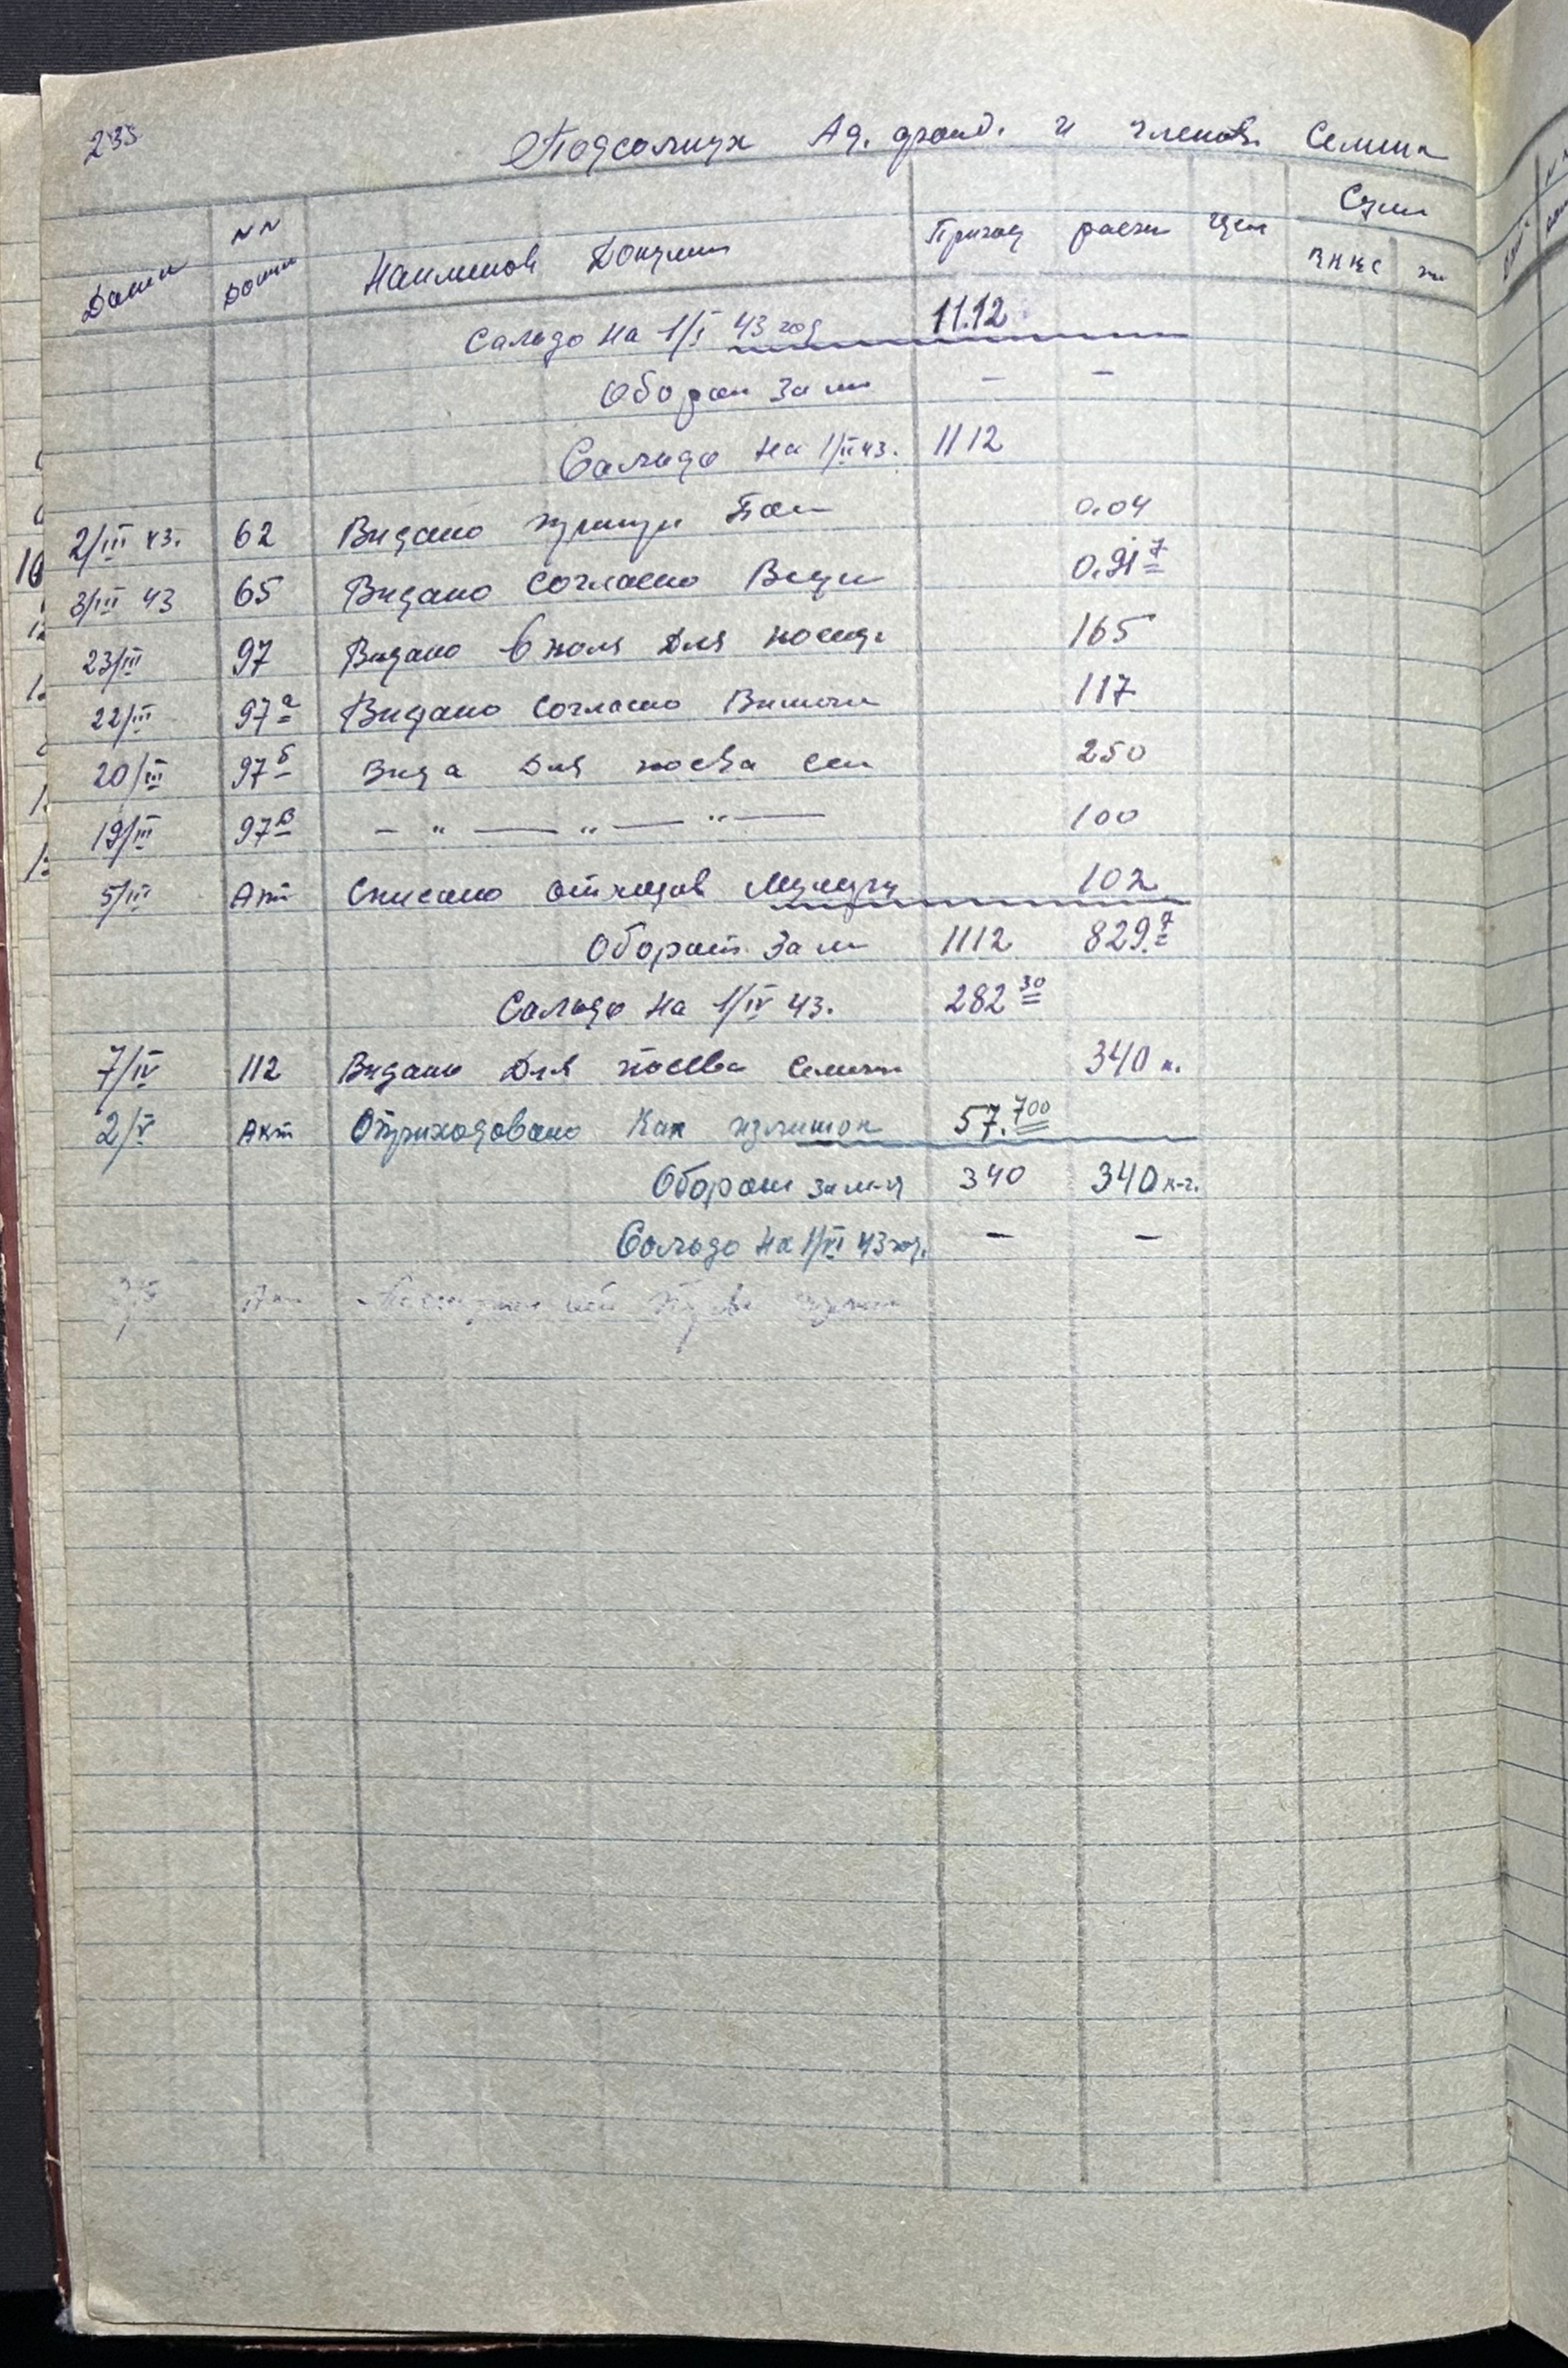 235
Подсолнух Ад. фонд. и членов Семена
Сум
NN Приход расх цен
Дата Доку Наименов Докумен
Сальдо на 1/I 43 год 11.12
Оборот За м — —
Сальдо на 1/II 43. 1112
2/III 43. 62 Видано 0.04
3/III 43 65 Видано Согласно Ведом 0.91 7
23/III 97 Видано в поля Для посев 165
22/III 97а Видано Согласно 117
20/III 97б Вида Для посева сем 250
19/III 97в — " — " — " — 100
5/III Акт Списано отходов 102
Оборот За м 1112 829.7
Сальдо на 1/IV 43. 282 30
7/IV 112 Видано Для посева Семена 340 к.
2/V Акт Оприходовано Как излишок 57.700
Оборот за м-ц 340 340 к-г.
Сальдо на 1/VI 43 год. — —